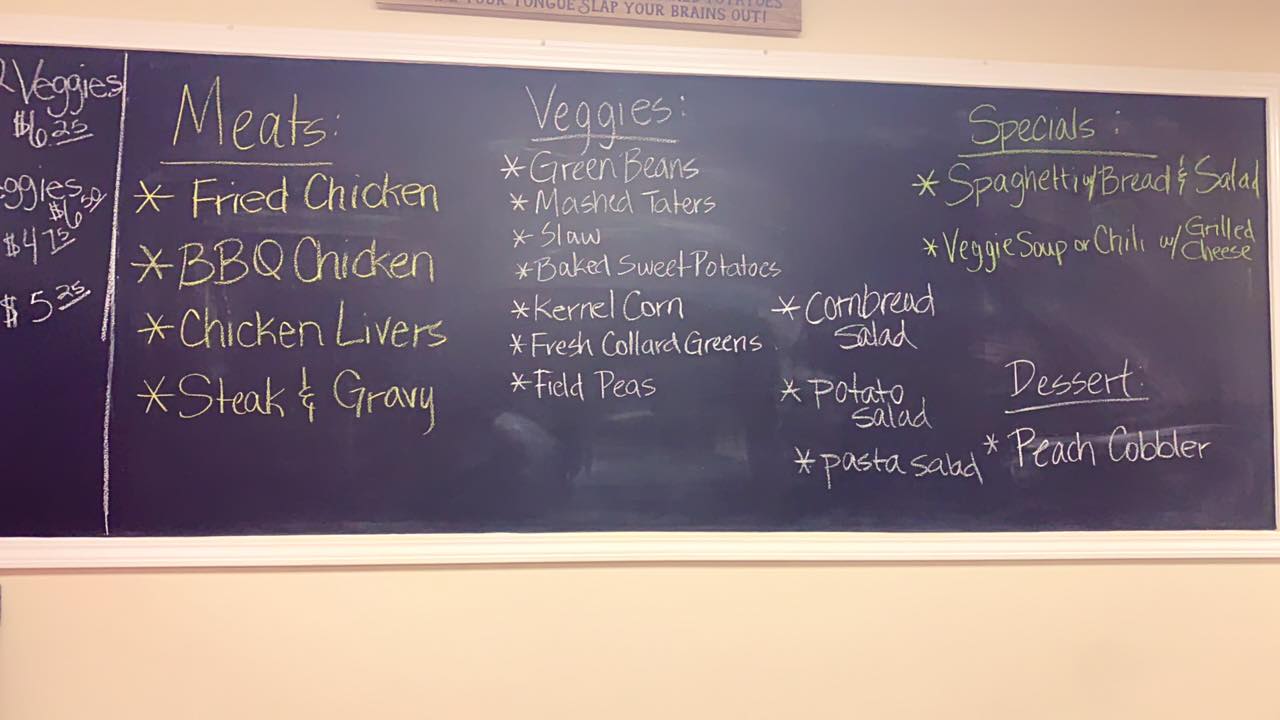 YOUR TONGUE SLAP YOUR BRAINS OUT!
2 Veggies
$6.25
$6.50
$4.75
$5.25
Meats:
* Fried Chicken
* BBQ Chicken
* Chicken Livers
* Steak & Gravy
Veggies:
* Green Beans
* Mashed Taters
* Slaw
* Baked Sweet Potatoes
* Kernel Corn
* Fresh Collard Greens
* Field Peas
* Cornbread
Salad
* Potato
Salad
* Pasta Salad
Specials:
* Spaghetti w/ Bread & Salad
* Veggie Soup or Chili w/ Grilled
Cheese
Dessert:
* Peach Cobbler